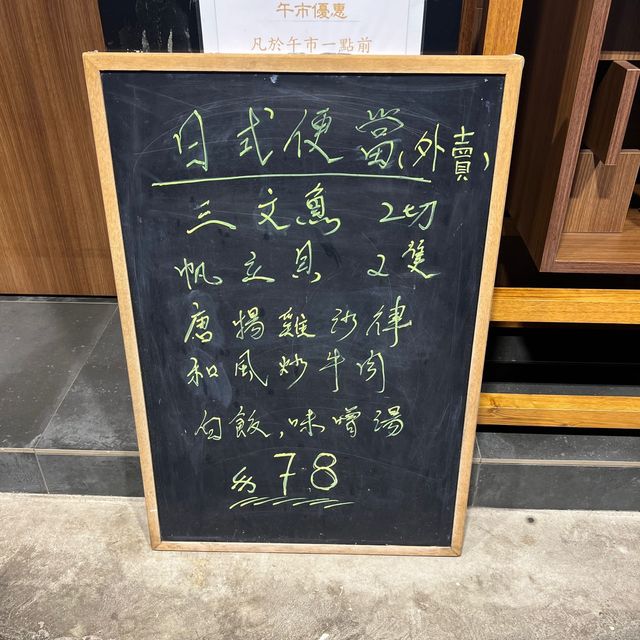 午市優惠
凡於午市一點前
日式便當(外賣)
三文魚 2切
帆立貝 2隻
唐揚雞沙律
和風炒牛肉
白飯,味噌湯
$78